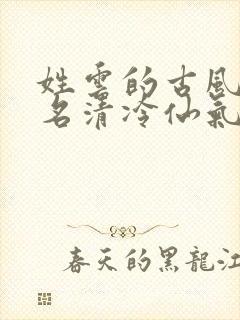 姓雲的古風
名清冷仙氣
春天的黑龍江